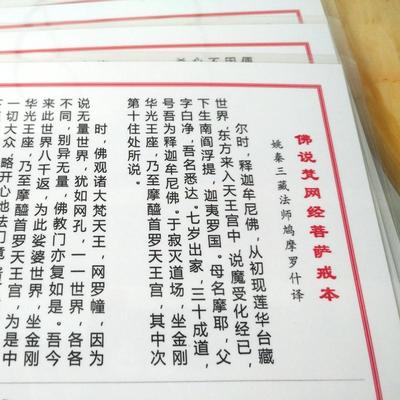 佛说梵网经菩萨戒本
姚秦三藏法师鸠摩罗什译
尔时，释迦牟尼佛，从初现莲华台藏
世界，东方来入天王宫中，说魔受化经已，
下生南阎浮提，迦夷罗国。母名摩耶，父
字白净，吾名悉达。七岁出家，三十成道，
号吾为释迦牟尼佛。于寂灭道场，坐金刚
华光王座，乃至摩醯首罗天王宫，其中次
第十住处所说。
时，佛观诸大梵天王，网罗幢，因为
说无量世界，犹如网孔，一一世界，各各
不同，别异无量，佛教门亦复如是。吾今
来此世界八千返，为此娑婆世界，坐金刚
华光王座，乃至摩醯首罗天王宫，为是中
一切大众，略开心地法门竟